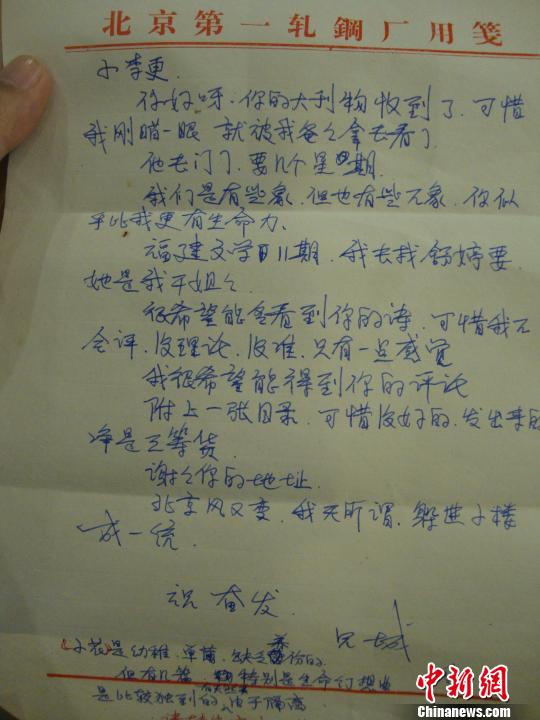 北京第一轧鋼厂用笺
小李更.
你好呀.你的大刊物收到了.可惜
我刚瞄一眼 就被我爸々拿去看了
他出门了.要几个星期.
我们是有些象.但也有些不象.你似
乎比我更有生命力.
福建文学11期.我去找舒婷要
她是我干姐々.
很希望能看到你的诗.可惜我不
会评.没理论.没准.只有一点感觉
我很希望能得到你的评论
附上一张目录.可惜没好的.发出来的
净是三等货.
谢々你的地址.
北京风又变.我无所谓.躲进小楼
成一统.
祝 奋发.
兄 城
是幼稚.单薄.缺乏养份的.
但有几篇 特别是生命幻想曲
是比较独到的. 由于隔离
中新网
www.chinanews.com